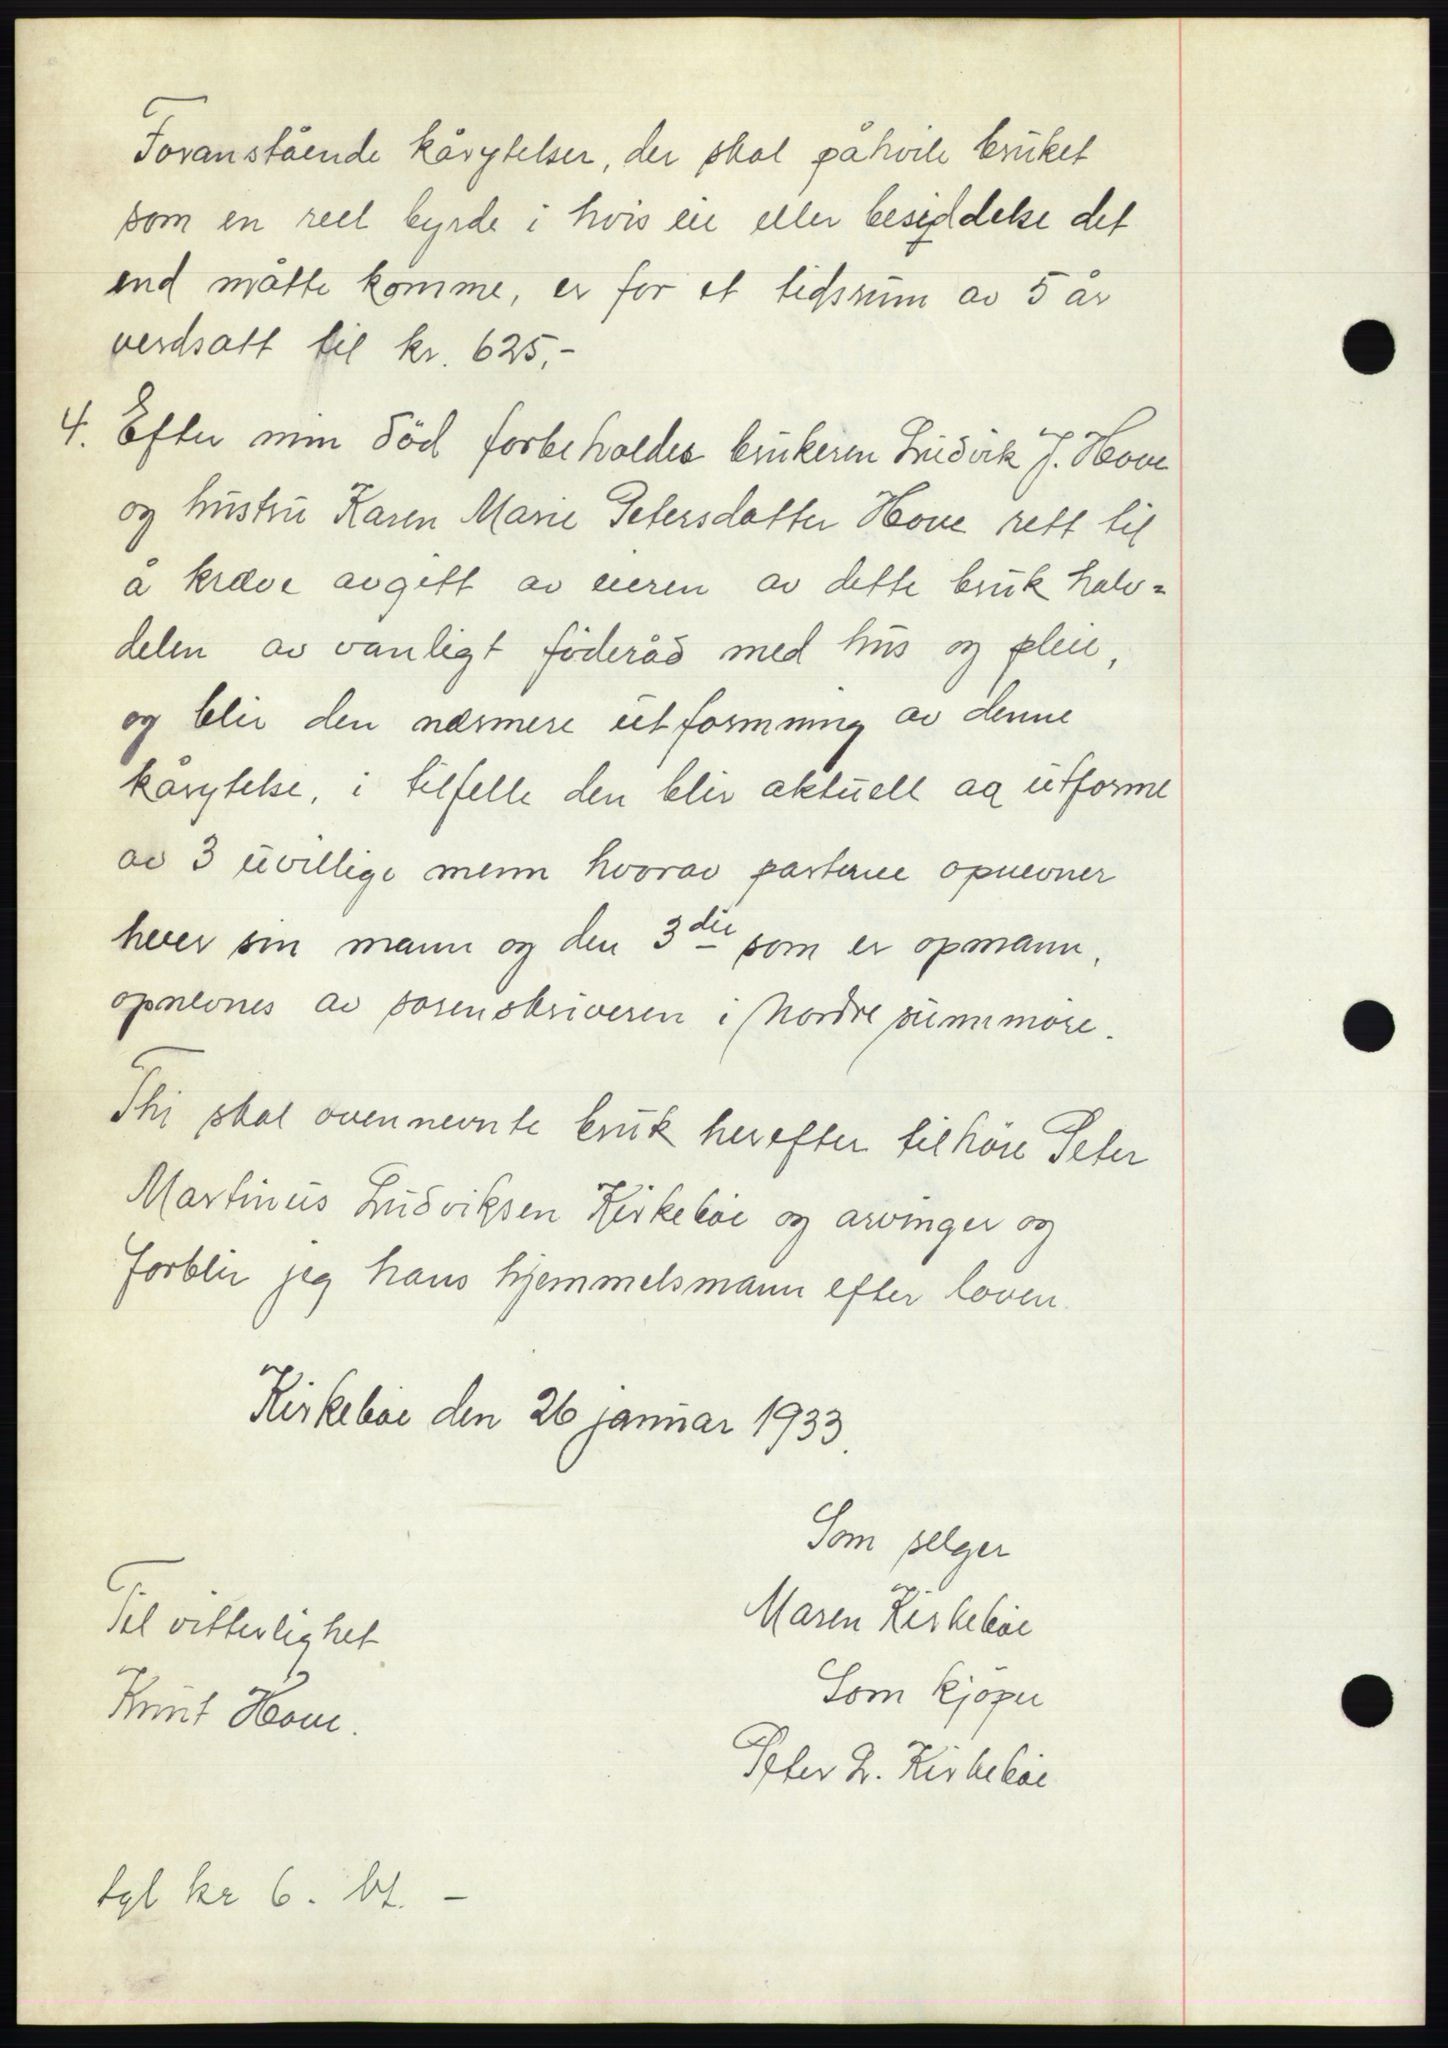 Foranstående kårytelser, der skal påhvile bruket
som en reel byrde i hvis eie eller besiddelse det
end måtte komme, er for et tidsrum av 5 år
verdsatt til kr. 625,-
4. Efter min död forbeholdes brukeren Ludvik J. Hove
og hustru Karen Marie Petersdatter Hove rett til
å kræve avgitt av eieren av dette bruk halv=
delen av vanligt föderåd med hus og pleie,
og blir den nærmere utformning av denne
kårytelse, i tilfelle den blir aktuell aa utforme
av 3 uvillige menn hvorav parterne opnevner
hver sin mann og den 3die som er opmann,
opnevnes av sorenskriveren i Nordre sunnmöre.
Thi skal ovennevnte bruk herefter tilhöre Peter
Martinus Ludviksen Kirkeböe og arvinger og
forblir jeg hans hjemmelsmann efter loven.
Kirkeböe den 26 januar 1933.
Som selger
Til vitterlighet
Maren Kirkeböe
Knut Hove.
Som kjöper
Peter L. Kirkeböe
tgl kr 6. bt. -